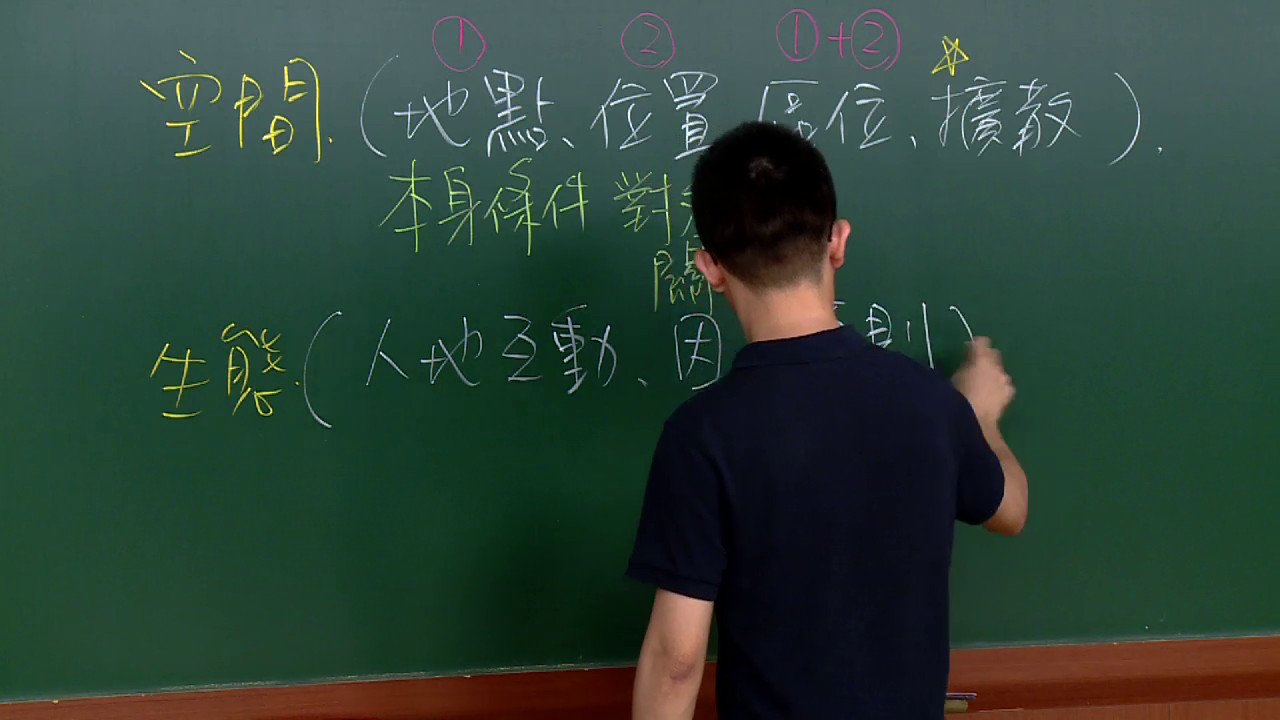 ① ② ①+②
空間.(地點、位置 區位、擴散).
本身條件 對
關
生態.(人地互動、因 則)